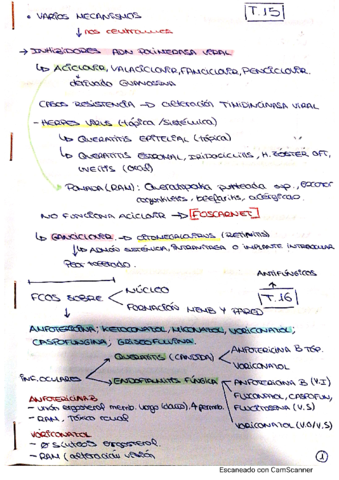 • VARIOS MECANISMOS
T.15
↓ nos centramos
→ INHIBIDORES ADN POLIMERASA VIRAL
↳ ACICLOVIR, VALACICLOVIR, FAMCICLOVIR, PENCICLOVIR
derivado GUANOSINA
CASOS RESISTENCIA → alteración TIMIDINCINASA VIRAL
- HERPES VIRUS (tópica/sistémica)
↳ QUERATITIS EPITELIAL (tópica)
↳ QUERATITIS ESTROMAL, IRIDOCICLITIS, H. ZÓSTER OFT,
UVEITIS (oral)
POMADA (RAM): Queratopatía punteada sup., escozor
conjuntivitis, blefaritis, alérgicas.
NO FUNCIONA ACICLOVIR → [FOSCARNET]
↳ GANCICLOVIR → CITOMEGALOVIRUS (RETINITIS)
↳ ADMÓN SISTÉMICA, INTRAVÍTREA O IMPLANTE INTRAOCULAR
Peor tolerado.
ANTIFÚNGICOS
T.16
FCOS SOBRE
NÚCLEO
FORMACIÓN MEMB Y PARED
ANFOTERICINA; KETOCONAZOL, MICONAZOL, VORICONAZOL;
CASPOFUNGINA; GRISEOFULVINA.
INF. OCULARES
QUERATITIS (CANDIDA)
ANFOTERICINA B TÓP.
VORICONAZOL
ENDOFTALMITIS FÚNGICA
ANFOTERICINA B (V.I)
FLUCONAZOL, CASPOFUN,
FLUCITOSINA (V.S)
VORICONAZOL (V.O/V.S)
ANFOTERICINA B
- unión ergosterol memb. hongo
- RAM, Tóxico renal
VORICONAZOL
- Ø síntesis ergosterol.
- RAM (alteración visión)
1
Escaneado con CamScanner